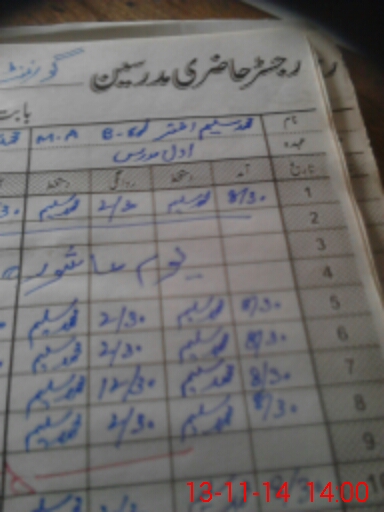 رجسٹر حاضری مدرسین
گورنمنٹ
بابت
نام محمد سلیم اختر M.A B.ed
عہدہ اول مدرس
تاریخ آمد دستخط روانگی دستخط
1 8/30 محمد سلیم 2/30 محمد سلیم
2
3
4 یوم عاشورہ
5 8/30 محمد سلیم 2/30 محمد سلیم
6 8/30 محمد سلیم 2/30 محمد سلیم
7 8/30 محمد سلیم 12/30 محمد سلیم
8 8/30 محمد سلیم 2/30 محمد سلیم
9
13-11-14 14.00